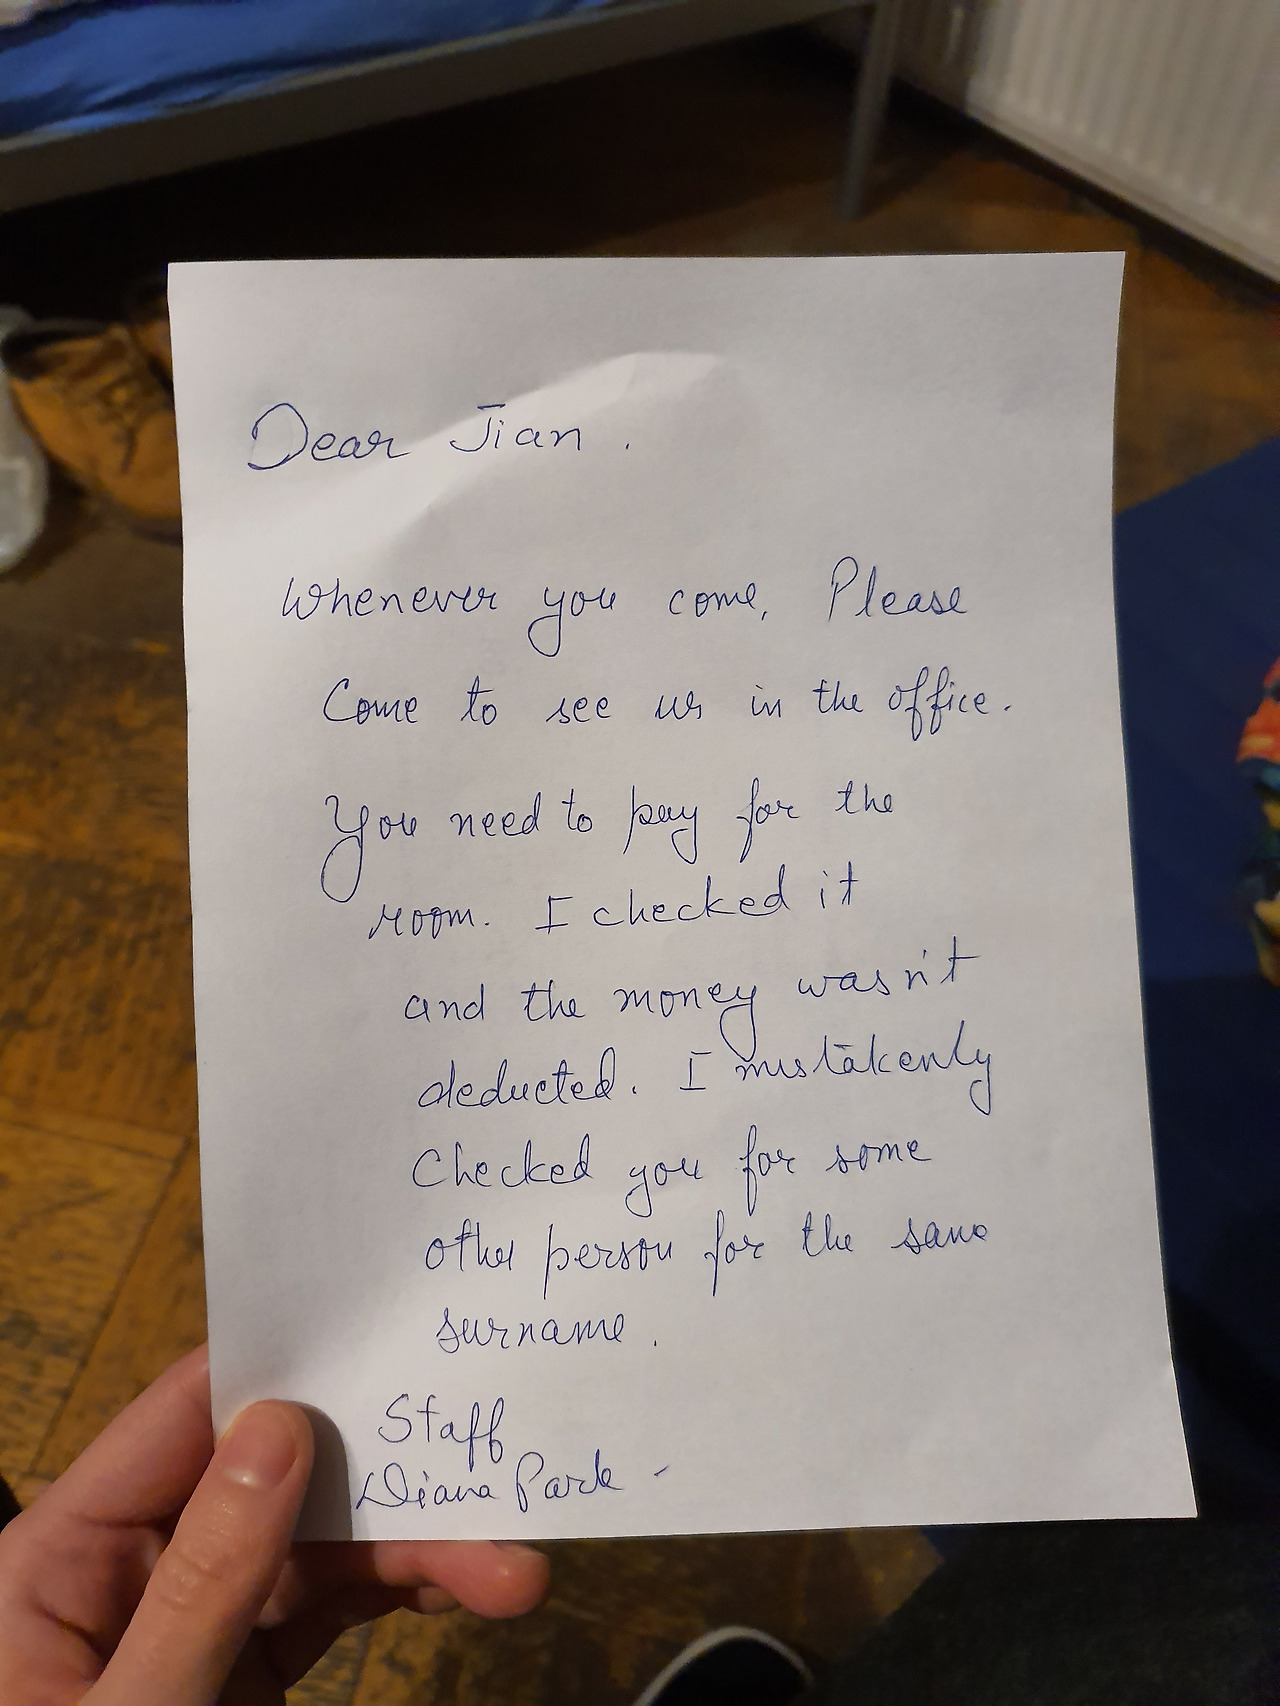 Dear Jian.
Whenever you come, Please
Come to see us in the office.
You need to pay for the
room. I checked it
and the money wasn't
deducted. I mistakenly
Checked you for some
other person for the same
surname.
Staff
Diana Park -